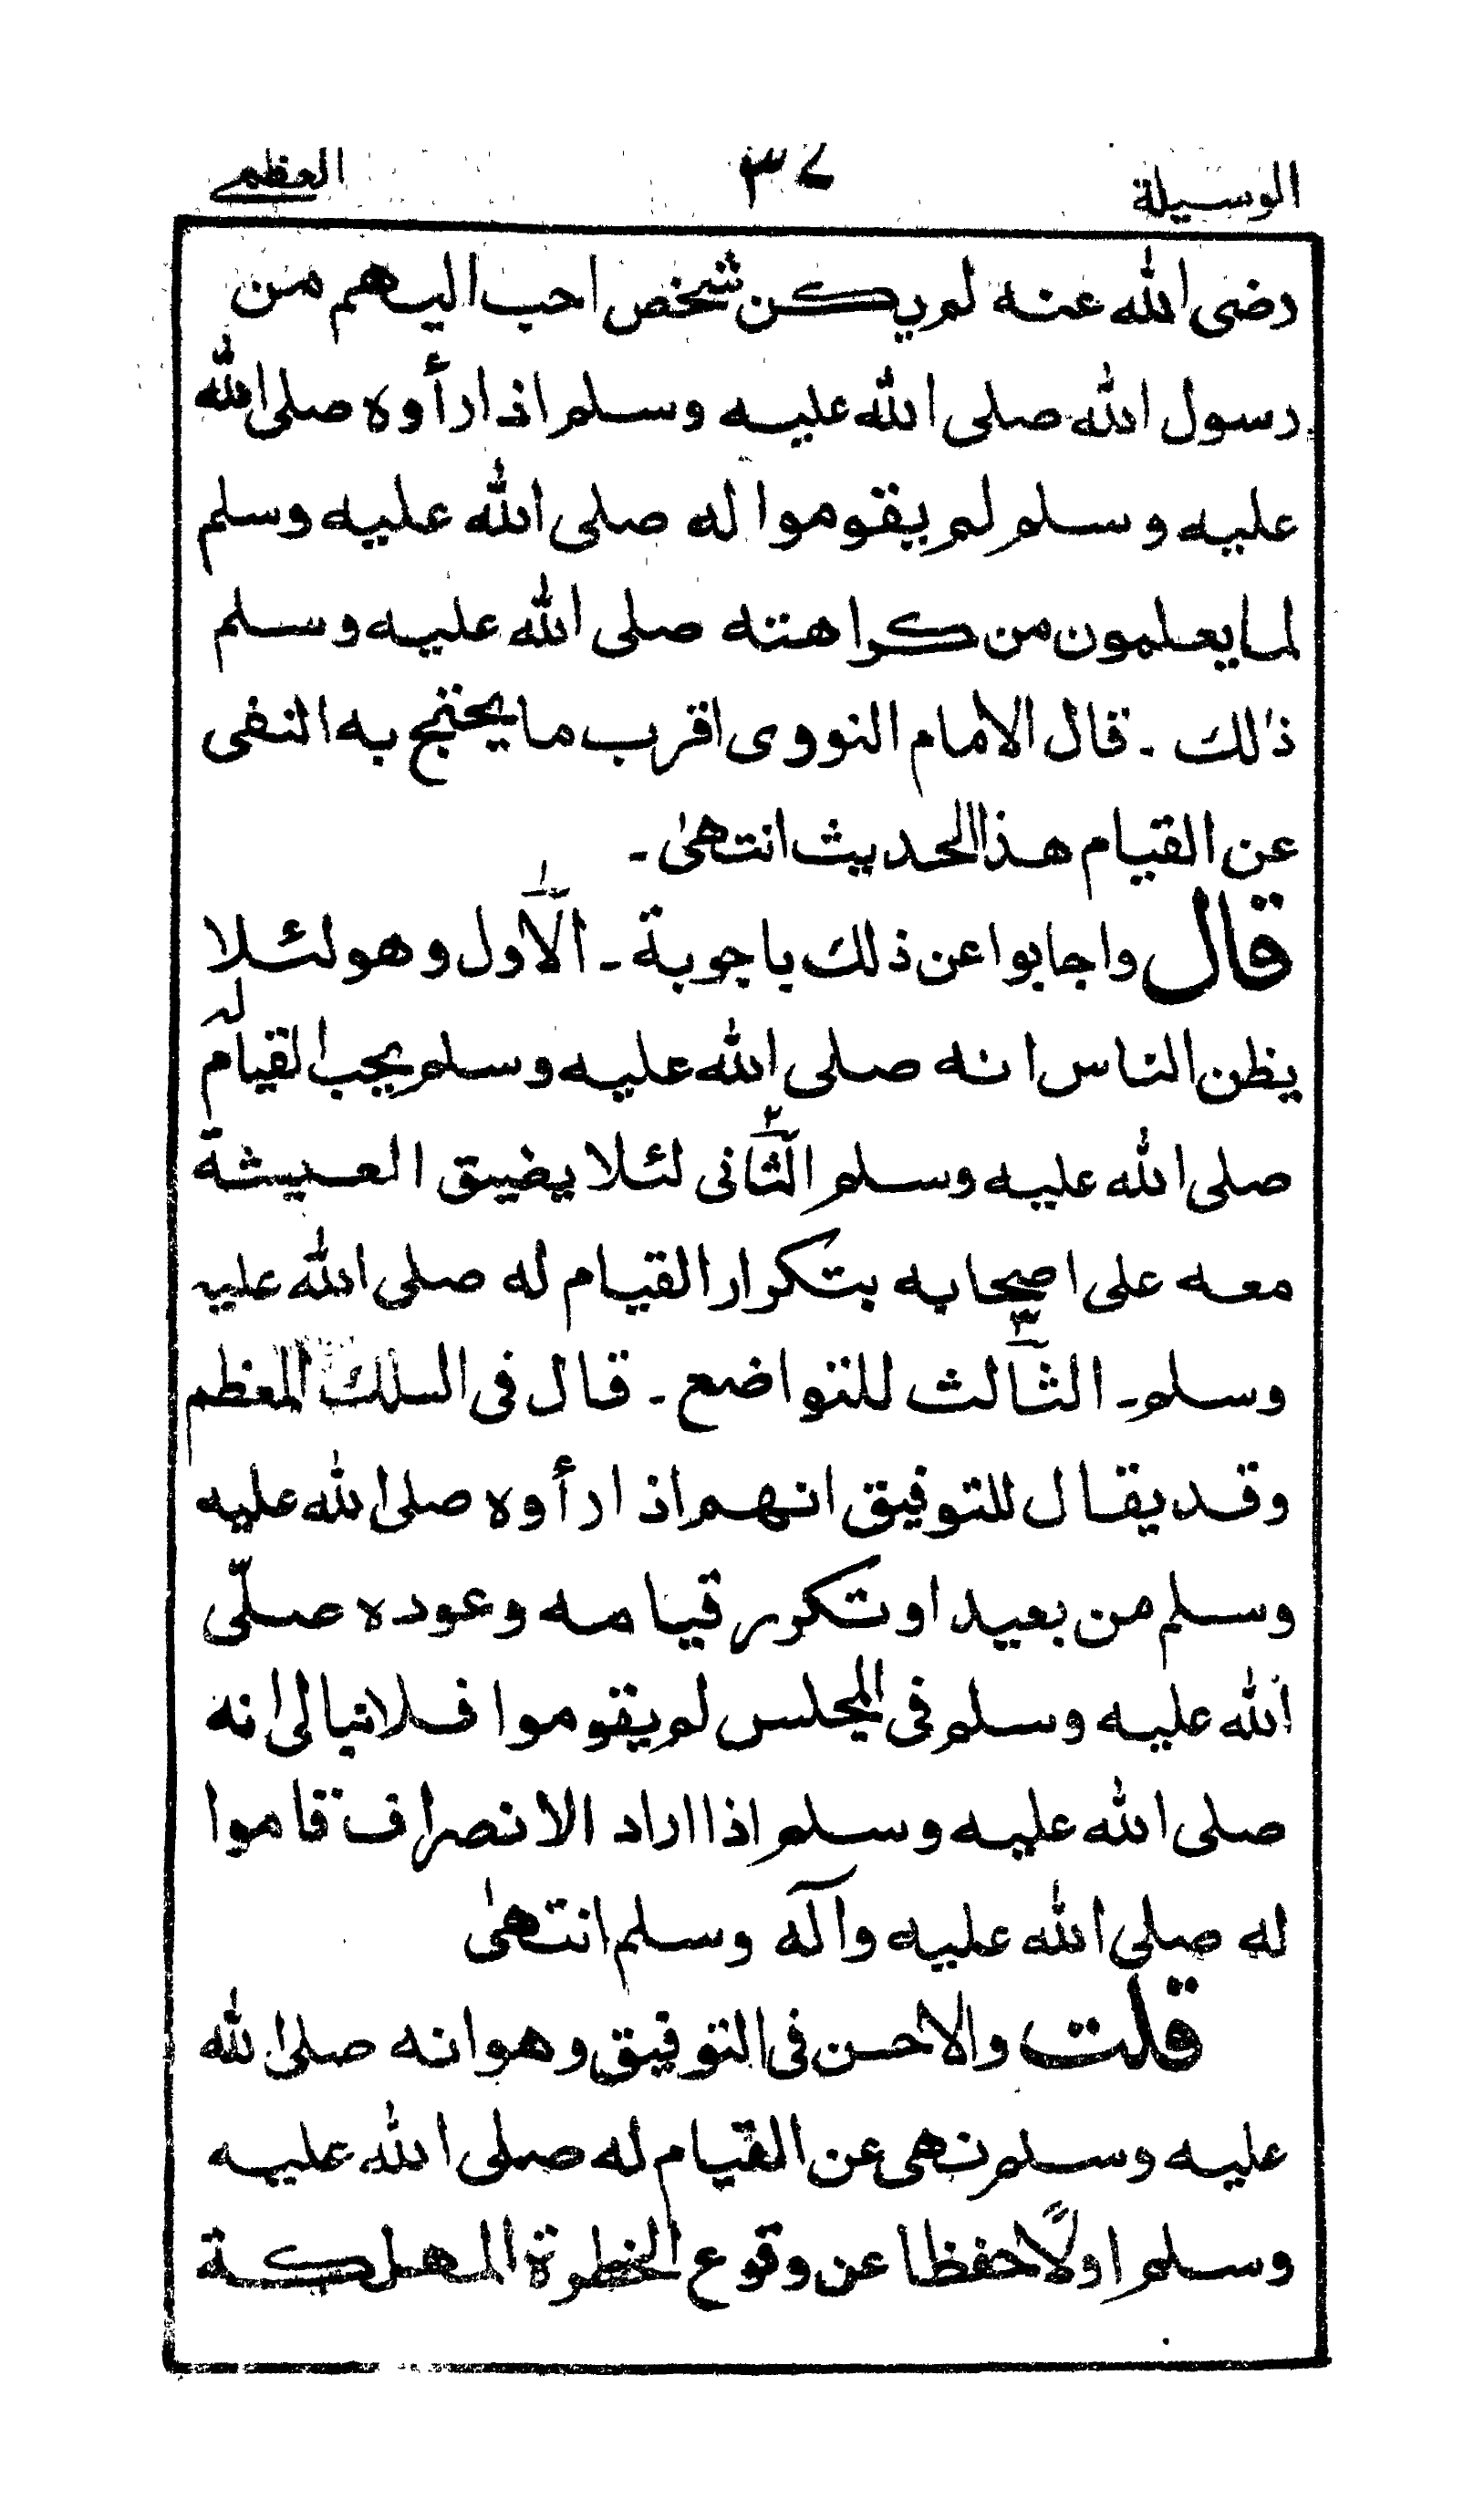 الوسيلة ٣٧ العظمى
رضى الله عنه لم يكن شخص احب اليهم من
رسول الله صلى الله عليه وسلم اذا رأوه صلى الله
عليه وسلم لم يقوموا له صلى الله عليه وسلم
لما يعلمون من كراهته صلى الله عليه وسلم
ذلك ـ قال الامام النووى اقرب ما يحتج به النفى
عن القيام هذا الحديث انتهىٰ ـ
قال واجابوا عن ذلك باجوبة ـ الاول ١ وهو لئلا
يظن الناس انه صلى الله عليه وسلم يجب القيام له
صلى الله عليه وسلم الثانى ٢ لئلا يضيق العيشة
معه على اصحابه بتكرار القيام له صلى الله عليه
وسلم ـ الثالث ٣ للتواضع ـ قال فى السلك المعظم
وقد يقال للتوفيق انهم اذا رأوه صلى الله عليه
وسلم من بعيد او تكرر قيامه وعوده صلّى
الله عليه وسلم فى المجلس لم يقوموا فلا تبالى انه
صلى الله عليه وسلم اذا اراد الانصراف قاموا
له صلى الله عليه وآله وسلم انتهىٰ
قلت والاحسن فى التوفيق وهو انه صلى الله
عليه وسلم نهى عن القيام له صلى الله عليه
وسلم اولاً حفظا عن وقوع الخطرة المهلكة